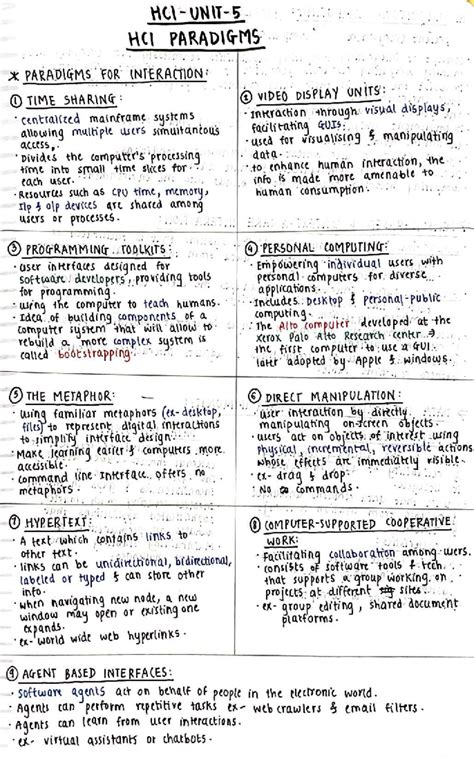 HCI-UNIT-5
HCI PARADIGMS
* PARADIGMS FOR INTERACTION:
① TIME SHARING:
· centralized mainframe systems
allowing multiple users simultaneous
access,.
· Divides the computer's processing
time into small time slices for
each user.
· Resources such as CPU time, memory,
I/p & o/p devices are shared among
users or processes.
② VIDEO DISPLAY UNITS:
· Interaction through visual displays,
facilitating GUIs.
· used for visualising & manipulating
data.
· to enhance human interaction, the
info is made more amenable to
human consumption.
③ PROGRAMMING TOOLKITS:
· user interfaces designed for
software developers, providing tools
for programming.
· using the computer to teach humans.
· Idea of building components of a
computer system that will allow to
rebuild a more complex system is
called bootstrapping.
④ PERSONAL COMPUTING:
· Empowering individual users with
personal computers for diverse
applications.
· Includes desktop & personal-public
computing.
· the Alto computer developed at the
Xerox Palo Alto Research center →
the first computer to use a GUI.
later adopted by Apple & windows.
⑤ THE METAPHOR:
· using familiar metaphors (ex-desktop,
files) to represent digital interactions
to simplify interface design.
· Make learning easier & computers more
accessible.
· command line interface offers no
metaphors.
⑥ DIRECT MANIPULATION:
· user interaction by directly
manipulating on-screen objects.
· users act on objects of interest using
physical, incremental, reversible actions
whose effects are immediately visible.
· ex- drag & drop
· No commands.
⑦ HYPERTEXT:
· A text which contains links to
other text.
· links can be unidirectional, bidirectional,
labeled or typed & can store other
info.
· when navigating new node, a new
window may open or existing one
expands.
· ex- world wide web hyperlinks.
⑧ COMPUTER-SUPPORTED COOPERATIVE
WORK:
· Facilitating collaboration among users.
· consists of software tools & tech.
that supports a group working on
projects at different sites.
· ex- group editing, shared document
platforms.
⑨ AGENT BASED INTERFACES:
· software agents act on behalf of people in the electronic world.
· Agents can perform repetitive tasks ex- web crawlers & email filters.
· Agents can learn from user interactions.
· ex- virtual assistants or chatbots.